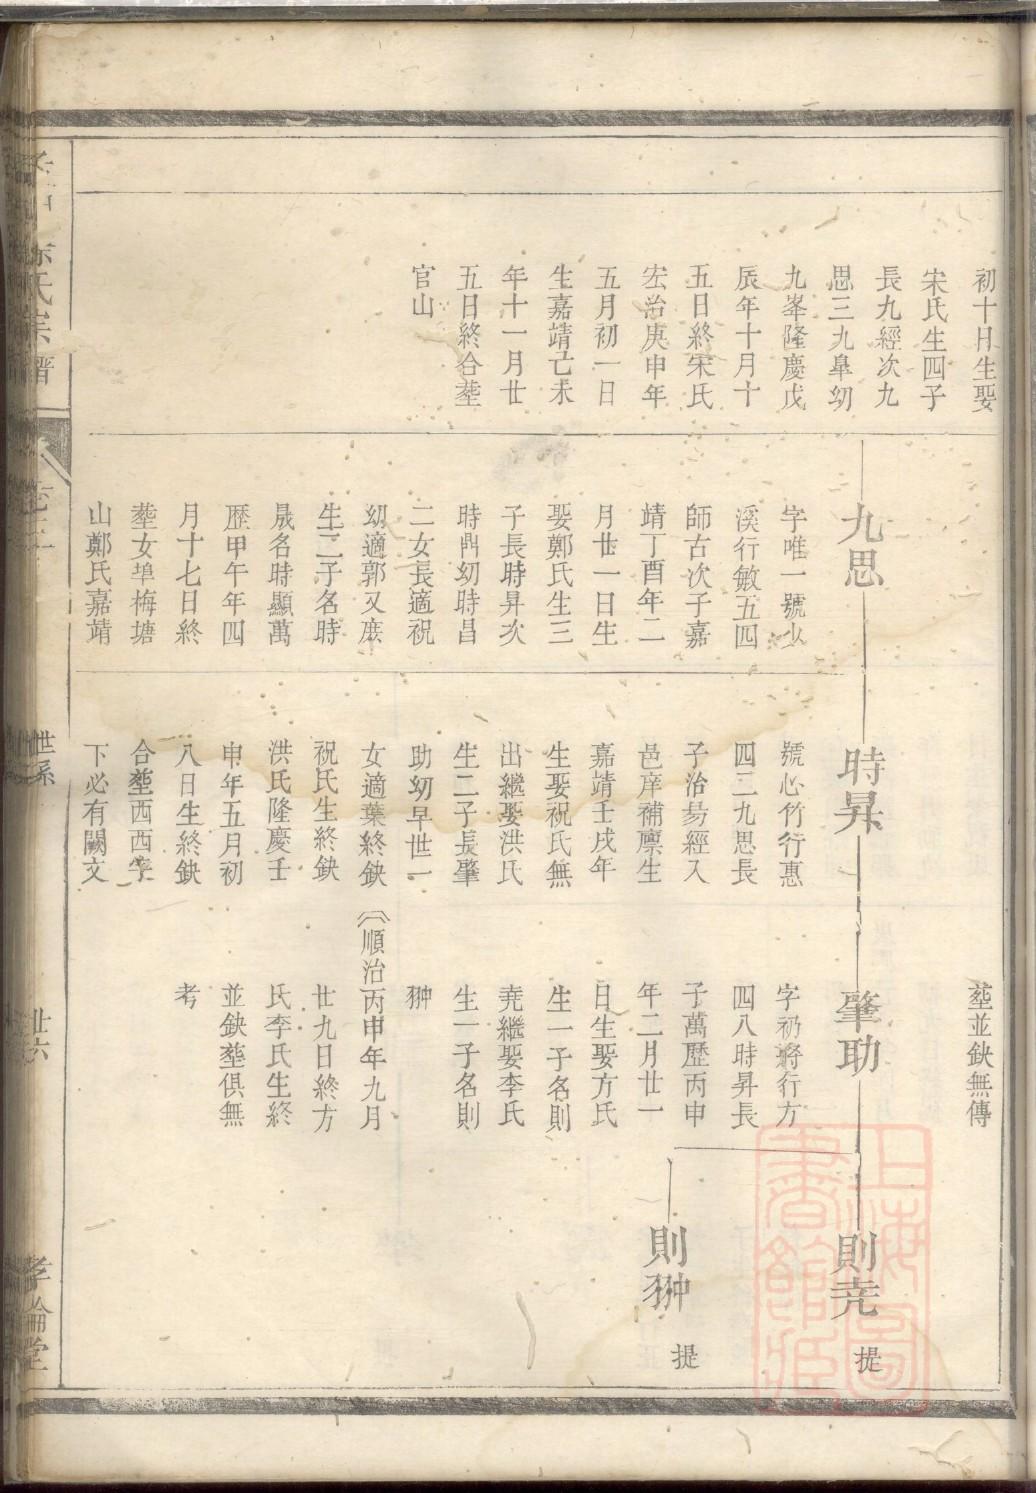 初十日生娶
宋氏生四子
長九經次九
思三九臯幼
九峯隆慶戊
辰年十月十
五日終宋氏
宏治庚申年
五月初一日
生嘉靖己未
年十一月廿
五日終合塟
官山
九思
字唯一號少
溪行敏五四
師古次子嘉
靖丁酉年二
月廿一日生
娶鄭氏生三
子長時昇次
時鼎幼時昌
二女長適祝
幼適郭又庶
生二子名時
晟名時顯萬
歷甲午年四
月十七日終
塟女埠梅塘
山鄭氏嘉靖
時昇
號心竹行惠
四二九思長
子治易經入
邑庠補廪生
嘉靖壬戌年
生娶祝氏無
出繼娶洪氏
生二子長肇
助幼早世一
女適葉終鈌
祝氏生終鈌
洪氏隆慶壬
申年五月初
八日生終鈌
合塟西西字
下必有闕文
塟並鈌無傳
肇助
字礽將行方
四八時昇長
子萬歷丙申
年二月廿一
日生娶方氏
生一子名則
尭繼娶李氏
生一子名則
翀
順治丙申年九月
廿九日終方
氏李氏生終
並鈌塟俱無
考
則尭
提
則翀
提
氏宗譜
世系
廿六
孝倫堂
上海圖書館藏